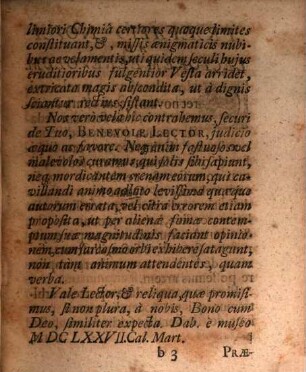 limiori Chimiæ certiores quoque limites
constituant, &, missis ænigmaticis nubi-
bus ac velamentis, uti quidem seculi hujus
eruditioribus fulgentior Vesta arridet,
extricata magis abscondita, ut à dignis
sciantur ac dissistant.
Nos verò vela hîc contrahemus, securi
de Tuo, BENEVOLE LECTOR, judicio
æquo ac favore. Neque enim fastuosos vel
malevolos curamus, qui solis sibi sapiunt,
neq; mordicantem strenam eorum, qui ca-
villandi animo levissima quæque
autorum errata, vel citra errorem etiam
proposita, ut per alienæ famæ contem-
ptum suæ magnitudinis faciant opinio-
nem, cum surdo sno orbi exhibere satagunt,
non tam animum attendentes, quam
verba.
Vale Lector, & reliqua, quæ promisi-
mus, si non plura, à nobis, Bono cum
Deo, similiter expecta. Dab. è museo
M DC LXXVII. Cal. Mart.
b 3 PRÆ-